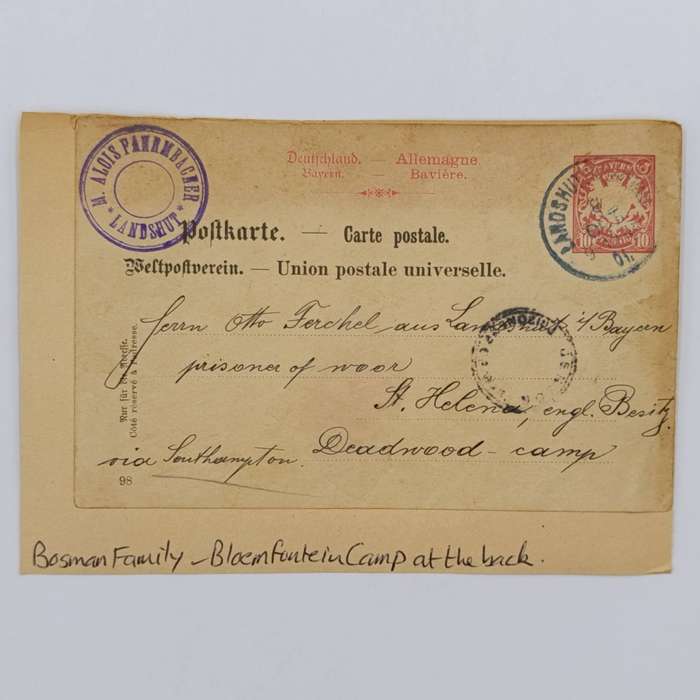 M. ALOIS FAHRMBACHER
* LANDSHUT *
Deutschland. — Allemagne.
Bayern. — Bavière.
BAYERN
10 10
LANDSHUT
01
Postkarte. — Carte postale.
Weltpostverein. — Union postale universelle.
Nur für die Adresse.
Côté réservé à l'adresse.
Herrn Otto Ferchel aus Landshut i/Bayern
prisoner of woor
St. Helena, engl. Besitz.
Deadwood - camp
via Southampton.
98
Bosman Family - Bloemfontein Camp at the back.